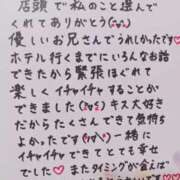 店頭で私のこと選んで
くれてありがとう(˶ᵔᵕᵔ˶)
優しいお兄さんでうれしかったです♡
ホテル行くまでにいろんなお話
できたから緊張ほぐれて
楽しくイチャイチャすることが
できました(˶ᵔᵕᵔ˶)キス大好き
だからたくさんできて気持ち
よかったです(˶ᵔᵕᵔ˶)♡一緒に
イチャイチャできてとても幸せ
でした♡またタイミングが合えば